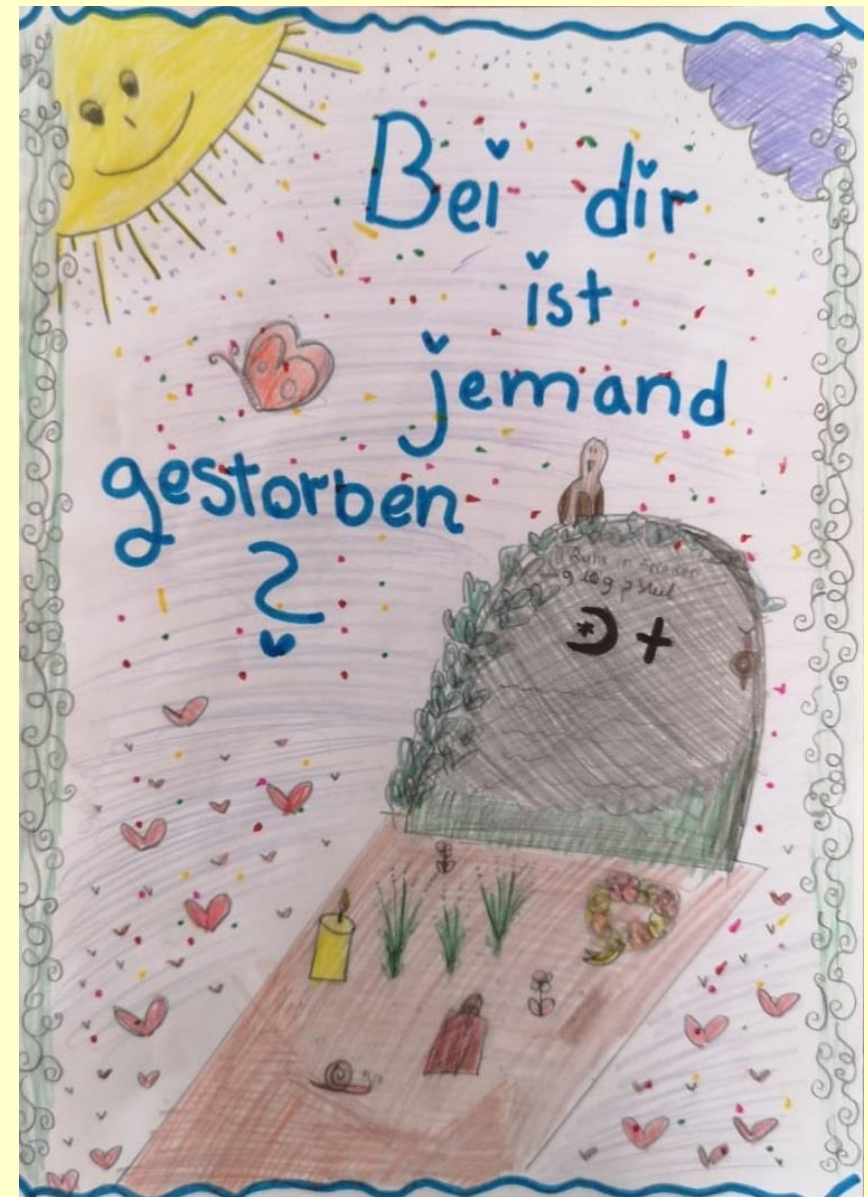 Bei dir
ist
jemand
gestorben
?
Ruhe in